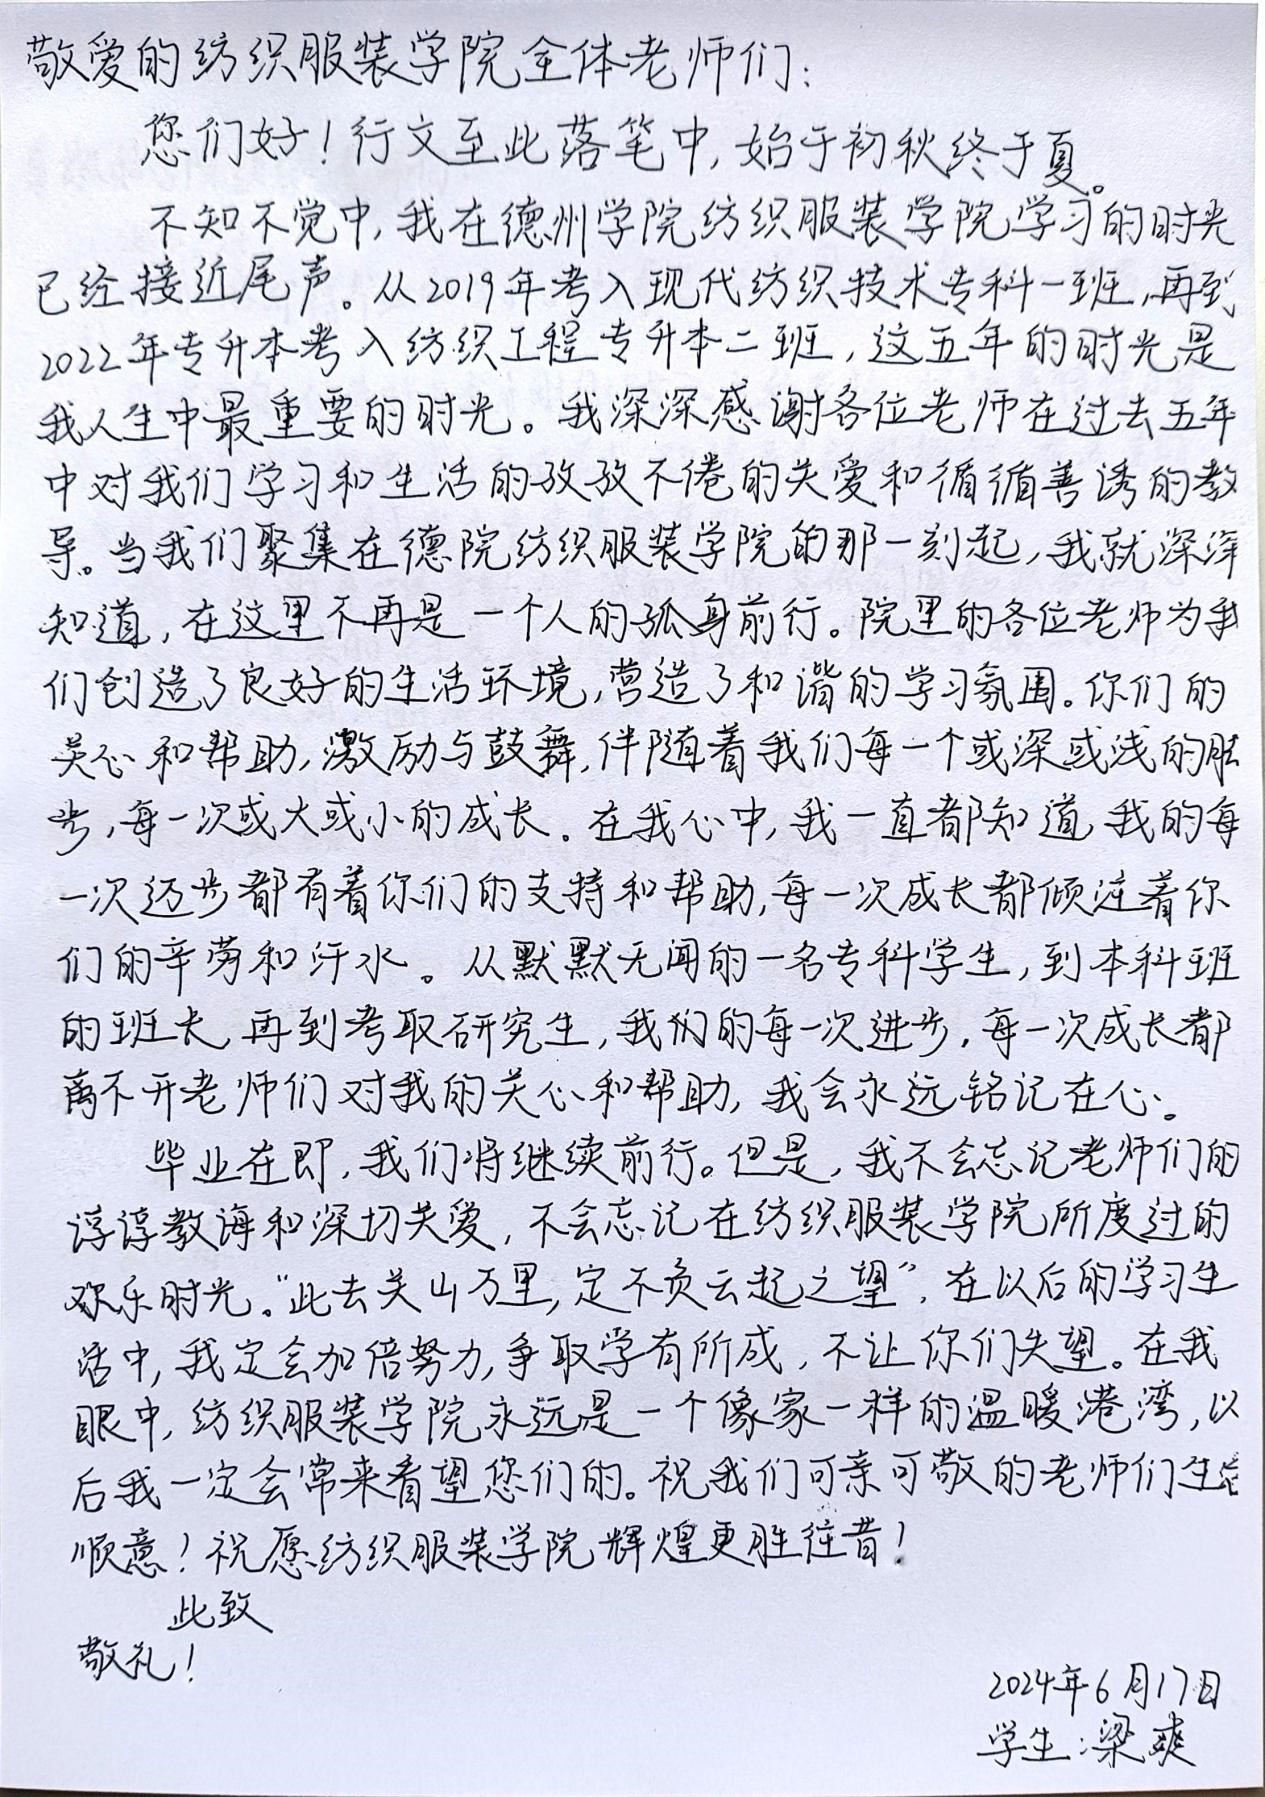 敬爱的纺织服装学院全体老师们：
您们好！行文至此落笔中，始于初秋终于夏。
不知不觉中，我在德州学院纺织服装学院学习的时光
已经接近尾声。从2019年考入现代纺织技术专科一班，再到
2022年专升本考入纺织工程专升本二班，这五年的时光是
我人生中最重要的时光。我深深感谢各位老师在过去五年
中对我们学习和生活的孜孜不倦的关爱和循循善诱的教
导。当我们聚集在德院纺织服装学院的那一刻起，我就深深
知道，在这里不再是一个人的孤身前行。院里的各位老师为我
们创造了良好的生活环境，营造了和谐的学习氛围。你们的
关心和帮助，激励与鼓舞，伴随着我们每一个或深或浅的脚
步，每一次或大或小的成长。在我心中，我一直都知道，我的每
一次迈步都有着你们的支持和帮助，每一次成长都倾注着你
们的辛劳和汗水。从默默无闻的一名专科学生，到本科班
的班长，再到考取研究生，我们的每一次进步，每一次成长都
离不开老师们对我的关心和帮助，我会永远铭记在心。
毕业在即，我们将继续前行。但是，我不会忘记老师们的
谆谆教诲和深切关爱，不会忘记在纺织服装学院所度过的
欢乐时光。“此去关山万里，定不负云起之望”，在以后的学习生
活中，我定会加倍努力，争取学有所成，不让你们失望。在我
眼中，纺织服装学院永远是一个像家一样的温暖港湾，以
后我一定会常来看望您们的。祝我们可亲可敬的老师们生活
顺意！祝愿纺织服装学院辉煌更胜往昔！
此致
敬礼！
2024年6月17日
学生：梁爽